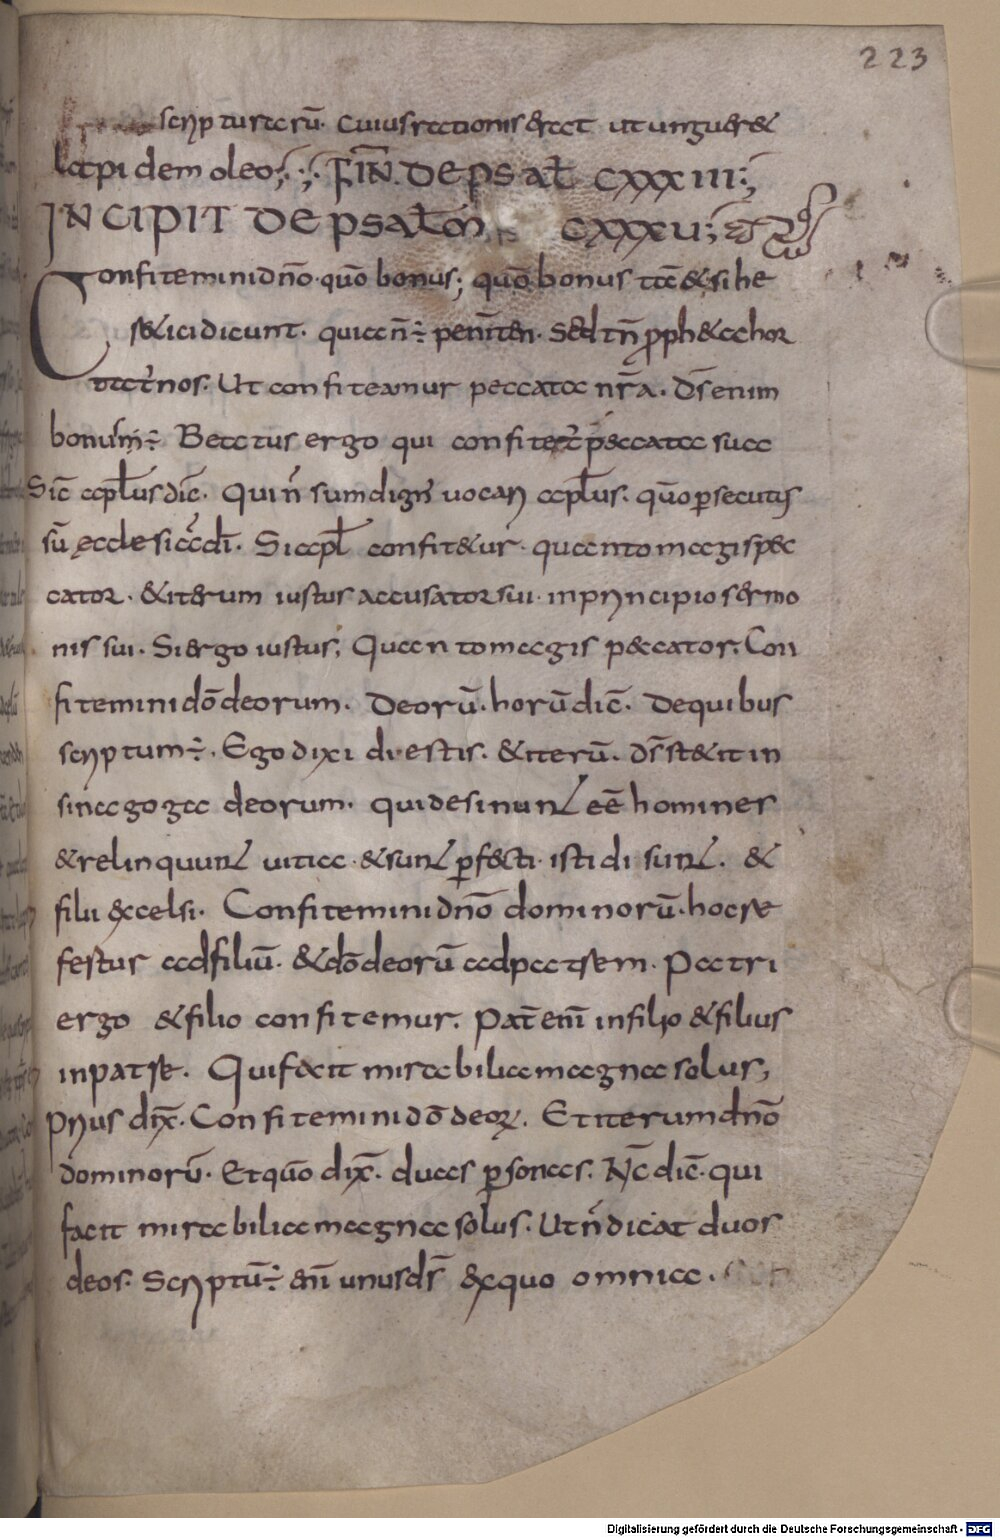 223
scripturarū. Cuius rationis erat ut ungueret
lapidem oleo; FIN̄. DE psal̄ CXXXIIII;
INCIPIT DE psal̄m CXXXU;
Confiteminidn̄o. quō bonus; quō bonus
selicidicunt. quiccn̄ ÷ penīten. Sed tn̄ ꝓph&a hor
tat̄ nos. Ut confiteamur peccata nr̄a. Ds̄ enim
bonum ÷ Beatus ergo qui confitet̄ peccata sua
Sic̄ apl̄us dic̄. Qui n̄ sum dign᷒ uocari apl̄us. quō ꝑsecutus
sū ecclesiā dī. Si apl̄ confit&ur. quanto magis pec
cator. & iterum iustus accusator sui. in principio sermo
nis sui. Si ergo iustus; Quanto magis peccator. Con
fitemini dō deorum. Deorū. horū dic̄. De quibus
scriptum ÷. Ego dixi di estis. & iterū. Ds̄ st&it in
sinagoga deorum. qui desinunt eē homines
& relinquunt uitia. & sunt ꝑfecti. isti di sunt. &
filii excelsi. Confitemini dn̄o dominorū. hoc se
festus ad filiū. & dō deorū ad patrem. Patri
ergo & filio confitemur. Pat̄ enī in filio & filius
in patre. Qui facit mirabilia magna solus;
Prius dix̄. Confitemini dō deoꝝ. Et iterum dn̄o
dominorū. Et quō dix̄. duas ꝑsonas. Nc̄ dic̄. qui
facit mirabilia magna solus. Ut n̄ dicat duos
deos. Scriptū ÷ enī unus ds̄ ex quo omnia.
Digitalisierung gefördert durch die Deutsche Forschungsgemeinschaft - DFG